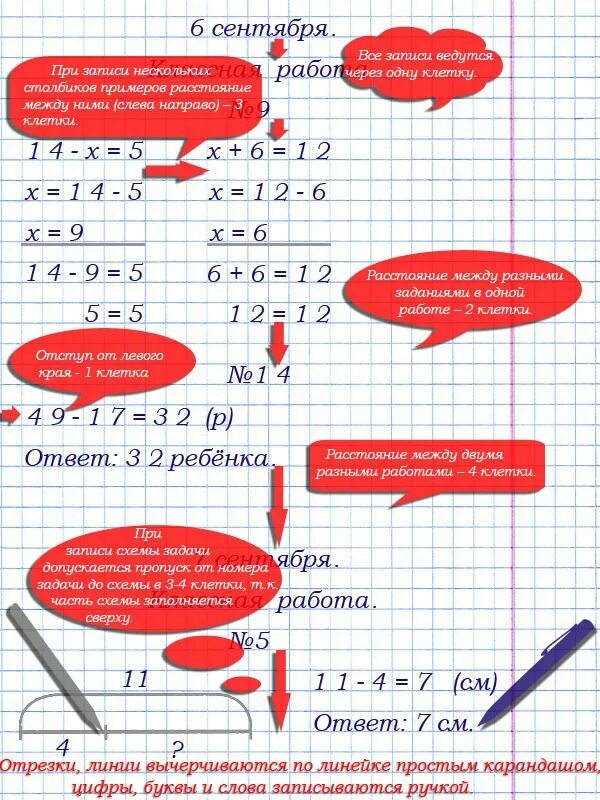 6 сентября.
Все записи ведутся
через одну клетку.
При записи нескольких
столбиков примеров расстояние
между ними (слева направо) – 3
клетки.
работа
№9
14 - х = 5    х + 6 = 12
х = 14 - 5    х = 12 - 6
х = 9    х = 6
14 - 9 = 5    6 + 6 = 12
5 = 5    12 = 12
Расстояние между разными
заданиями в одной
работе – 2 клетки.
Отступ от левого
края - 1 клетка
№14
49 - 17 = 32 (р)
Ответ: 32 ребёнка.
Расстояние между двумя
разными работами – 4 клетки.
При
записи схемы задачи
допускается пропуск от номера
задачи до схемы в 3-4 клетки, т.к.
часть схемы заполняется
сверху.
7 сентября.
работа.
№5
11
4    ?
11 - 4 = 7 (см)
Ответ: 7 см.
Отрезки, линии вычерчиваются по линейке простым карандашом,
цифры, буквы и слова записываются ручкой.